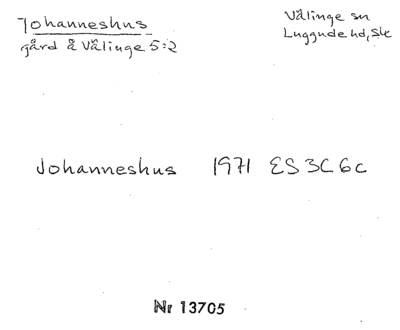 Johanneshus
gård å Välinge 5:2
Välinge sn
Luggude hd, Sk
Johanneshus 1971 ES 3C 6c
Nr 13705